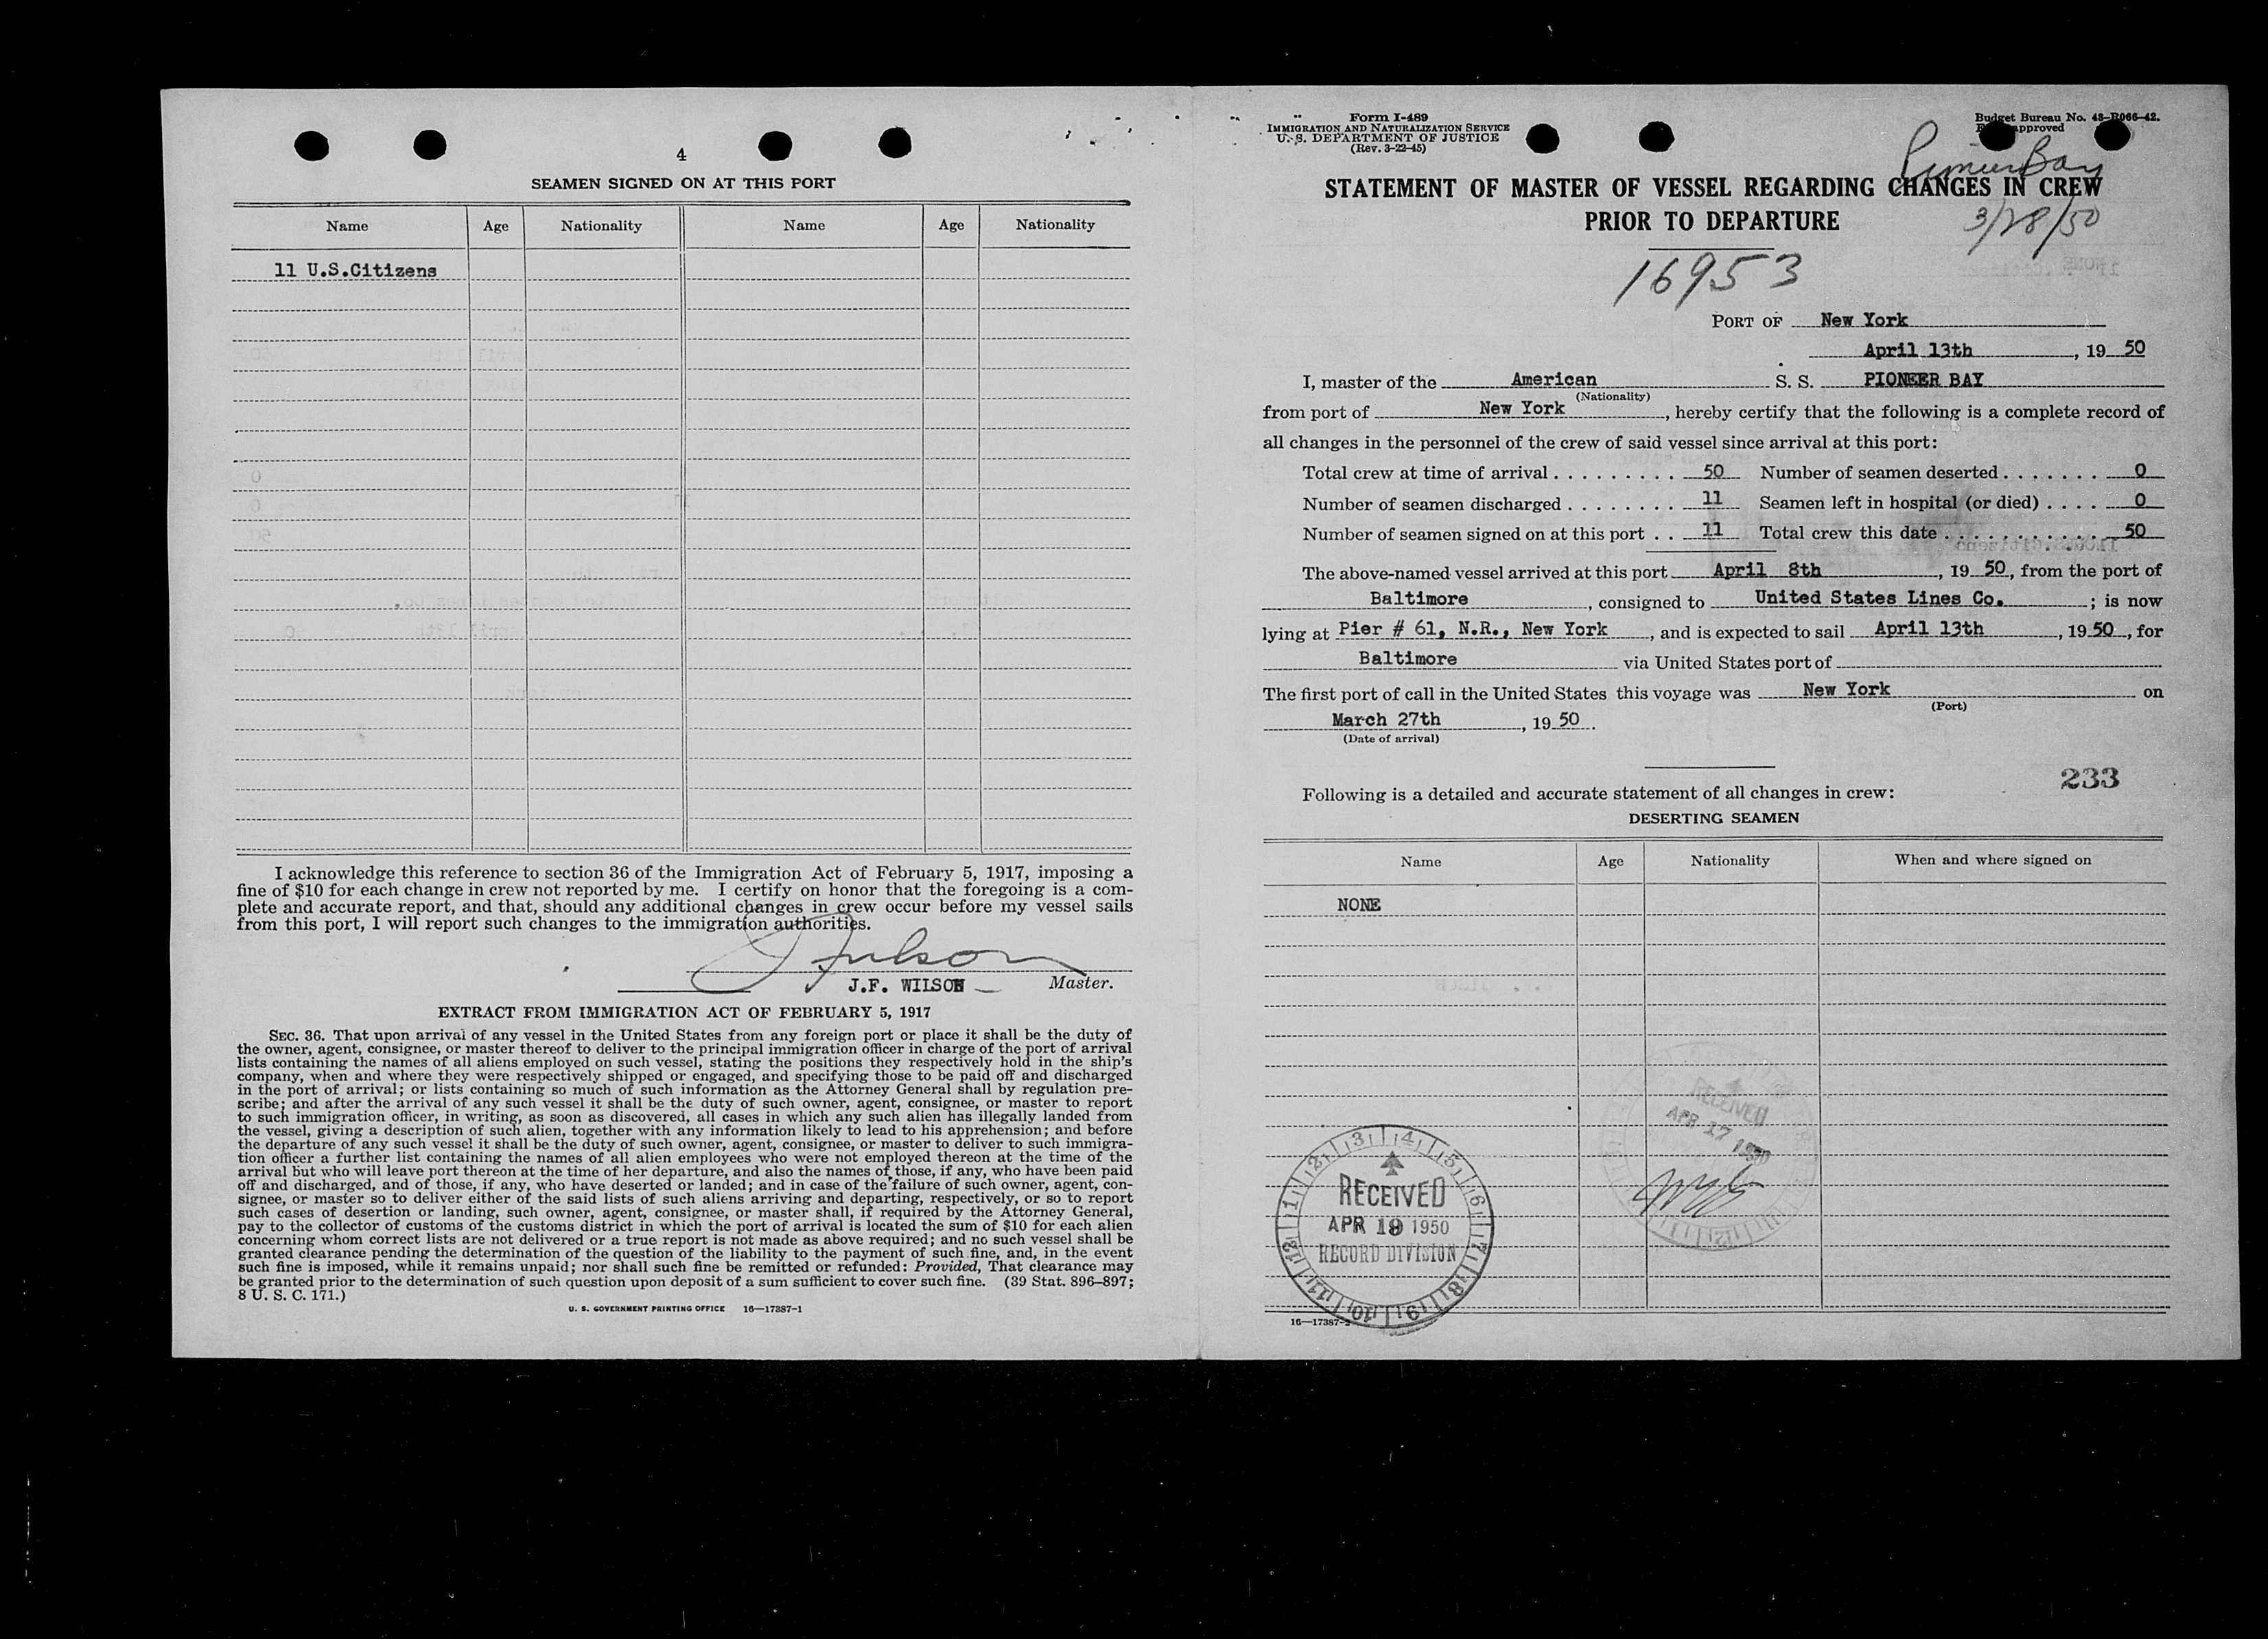 4
SEAMEN SIGNED ON AT THIS PORT
Name Age Nationality Name Age Nationality
11 U.S.Citizens
I acknowledge this reference to section 36 of the Immigration Act of February 5, 1917, imposing a
fine of $10 for each change in crew not reported by me. I certify on honor that the foregoing is a com-
plete and accurate report, and that, should any additional changes in crew occur before my vessel sails
from this port, I will report such changes to the immigration authorities.
J.F. WILSON Master.
EXTRACT FROM IMMIGRATION ACT OF FEBRUARY 5, 1917
SEC. 36. That upon arrival of any vessel in the United States from any foreign port or place it shall be the duty of
the owner, agent, consignee, or master thereof to deliver to the principal immigration officer in charge of the port of arrival
lists containing the names of all aliens employed on such vessel, stating the positions they respectively hold in the ship's
company, when and where they were respectively shipped or engaged, and specifying those to be paid off and discharged
in the port of arrival; or lists containing so much of such information as the Attorney General shall by regulation pre-
scribe; and after the arrival of any such vessel it shall be the duty of such owner, agent, consignee, or master to report
to such immigration officer, in writing, as soon as discovered, all cases in which any such alien has illegally landed from
the vessel, giving a description of such alien, together with any information likely to lead to his apprehension; and before
the departure of any such vessel it shall be the duty of such owner, agent, consignee, or master to deliver to such immigra-
tion officer a further list containing the names of all alien employees who were not employed thereon at the time of the
arrival but who will leave port thereon at the time of her departure, and also the names of those, if any, who have been paid
off and discharged, and of those, if any, who have deserted or landed; and in case of the failure of such owner, agent, con-
signee, or master so to deliver either of the said lists of such aliens arriving and departing, respectively, or so to report
such cases of desertion or landing, such owner, agent, consignee, or master shall, if required by the Attorney General,
pay to the collector of customs of the customs district in which the port of arrival is located the sum of $10 for each alien
concerning whom correct lists are not delivered or a true report is not made as above required; and no such vessel shall be
granted clearance pending the determination of the question of the liability to the payment of such fine, and, in the event
such fine is imposed, while it remains unpaid; nor shall such fine be remitted or refunded: Provided, That clearance may
be granted prior to the determination of such question upon deposit of a sum sufficient to cover such fine. (39 Stat. 896–897;
8 U. S. C. 171.)
U. S. GOVERNMENT PRINTING OFFICE 16—17387-1
Form I-489
IMMIGRATION AND NATURALIZATION SERVICE
U. S. DEPARTMENT OF JUSTICE
(Rev. 3-22-45)
Budget Bureau No. 43-R066-42.
approved
Pioneer Bay
STATEMENT OF MASTER OF VESSEL REGARDING CHANGES IN CREW
PRIOR TO DEPARTURE
3/28/50
16953
PORT OF New York
April 13th, 19 50
I, master of the American S. S. PIONEER BAY
(Nationality)
from port of New York, hereby certify that the following is a complete record of
all changes in the personnel of the crew of said vessel since arrival at this port:
Total crew at time of arrival . . . . . . . . . . 50 Number of seamen deserted . . . . . . . 0
Number of seamen discharged . . . . . . . . . 11 Seamen left in hospital (or died) . . . . 0
Number of seamen signed on at this port . . 11 Total crew this date . . . . . . . . . . . . 50
The above-named vessel arrived at this port April 8th, 19 50, from the port of
Baltimore, consigned to United States Lines Co.; is now
lying at Pier # 61, N.R., New York, and is expected to sail April 13th, 19 50, for
Baltimore via United States port of
The first port of call in the United States this voyage was New York on
(Port)
March 27th, 19 50.
(Date of arrival)
233
Following is a detailed and accurate statement of all changes in crew:
DESERTING SEAMEN
Name Age Nationality When and where signed on
NONE
RECEIVED
APR 17 1950
1 2 3 4 5 6 7 8 9 10 11 12
RECEIVED
APR 19 1950
RECORD DIVISION
16—17387-2